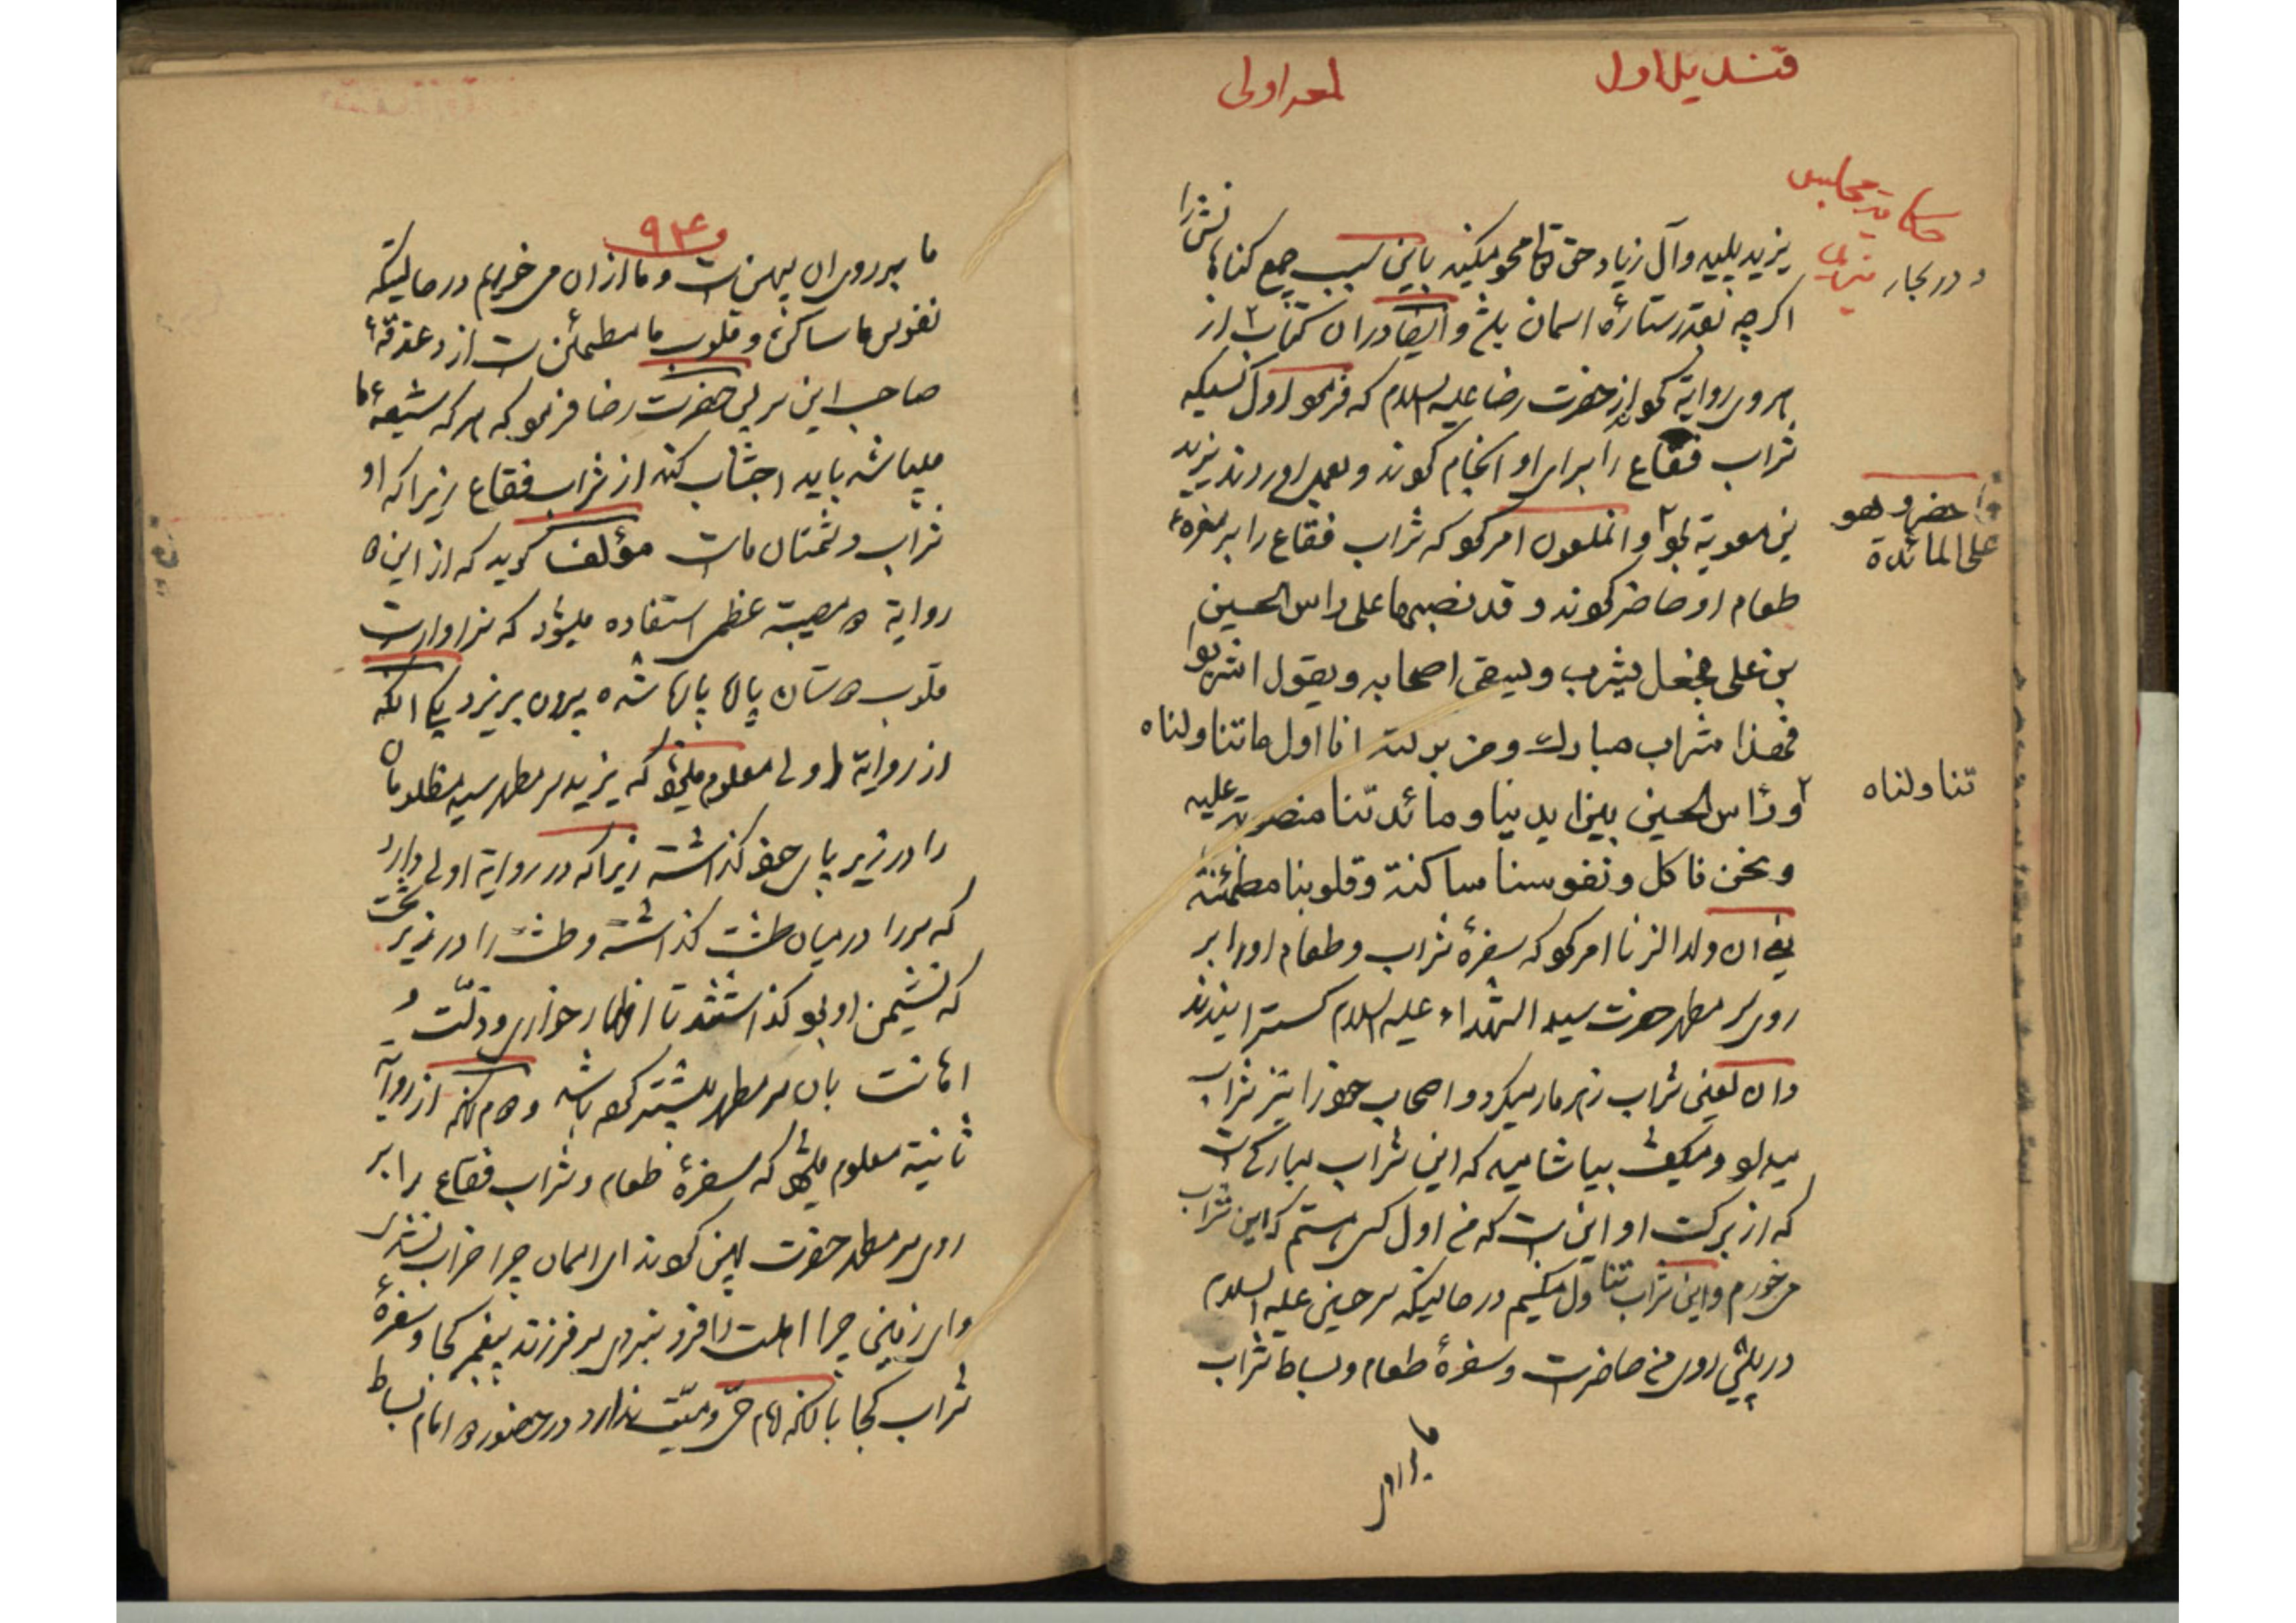 قندیل اول
لمعه اولی
حکایة مجالس
و در بحار
یزید پلید و آل زیاد حق تعالی محو میکند باین سبب جمیع کناهانش را
اکرچه بقدر ستارهٔ اسمان باشد و ایضا در ان کتاب از
هروی روایة کرده از حضرت رضا علیه السلام که فرمود اول کسیکه
شراب فقاع را برای او انجام کردند و بعمل اوردند یزید
بن معویة بود و انملعون امر کرد که شراب فقاع را بر سفرهٔ
طعام او حاضر کردند و قد نصبها على راس الحسین
بن علی فجعل یشرب و یسقی اصحابه و یقول اشربوا
فهذا شراب مبارك و من برکته انا اول ما تناولناه
و راس الحسین بین ایدینا و مائدتنا منصوبة علیه
و نحن ناکل و نفوسنا ساکنة و قلوبنا مطمئنة
یعنی ان ولد الزنا امر کرد که سفرهٔ شراب و طعام او را بر
روی سر مطهر حضرت سید الشهداء علیه السلام کسترانیدند
و ان لعین شراب زهر مار میکرد و اصحاب خود را نیز شراب
میداد و میکفت بیاشامید که این شراب مبارکی است
که از برکت او این است که من اول کسی هستم که این شراب
می خورم و این شراب تناول میکنیم در حالیکه سر حسین علیه السلام
در پیش روی من حاضر است و سفرهٔ طعام و بساط شراب
حضر و هو
على المائدة
تناولناه
ما بر روی
۹۴
ما بر روی ان پهن است و ما از ان می خوریم در حالیکه
نفوس ما ساکن و قلوب ما مطمئن است از دغدغهٔ
صاحب این سر پس حضرت رضا فرمود که هر که شیعهٔ ما
میباشد باید اجتناب کند از شراب فقاع زیرا که او
شراب دشمنان ما است مؤلف کوید که از این دو
روایة دو مصیبة عظمی استفاده میشود که سزاوار است
قلوب دوستان پاره پاره شده بیرون بریزد یکی انکه
از روایة اولی معلوم میشود که یزید سر مطهر سید مظلومان
را در زیر پای خود کذاشته زیرا که در روایة اولی دارد
که سر را در میان طشت کذاشته و طشت را در زیر تخت
که نشیمن او بود کذاشتند تا اظهار خواری و ذلت و
اهانت بان سر مطهر بیشتر کرده باشد و دوم انکه از روایة
ثانیة معلوم میشود که سفرهٔ طعام و شراب فقاع را بر
روی سر مطهر حضرت پهن کردند ای اسمان چرا خراب نشدی
و ای زمین چرا اهلت را فرو نبردی سر فرزند پیغمبر کجا و سفرهٔ
شراب کجا با انکه امام حی و میت ندارد در حضور امام بساط